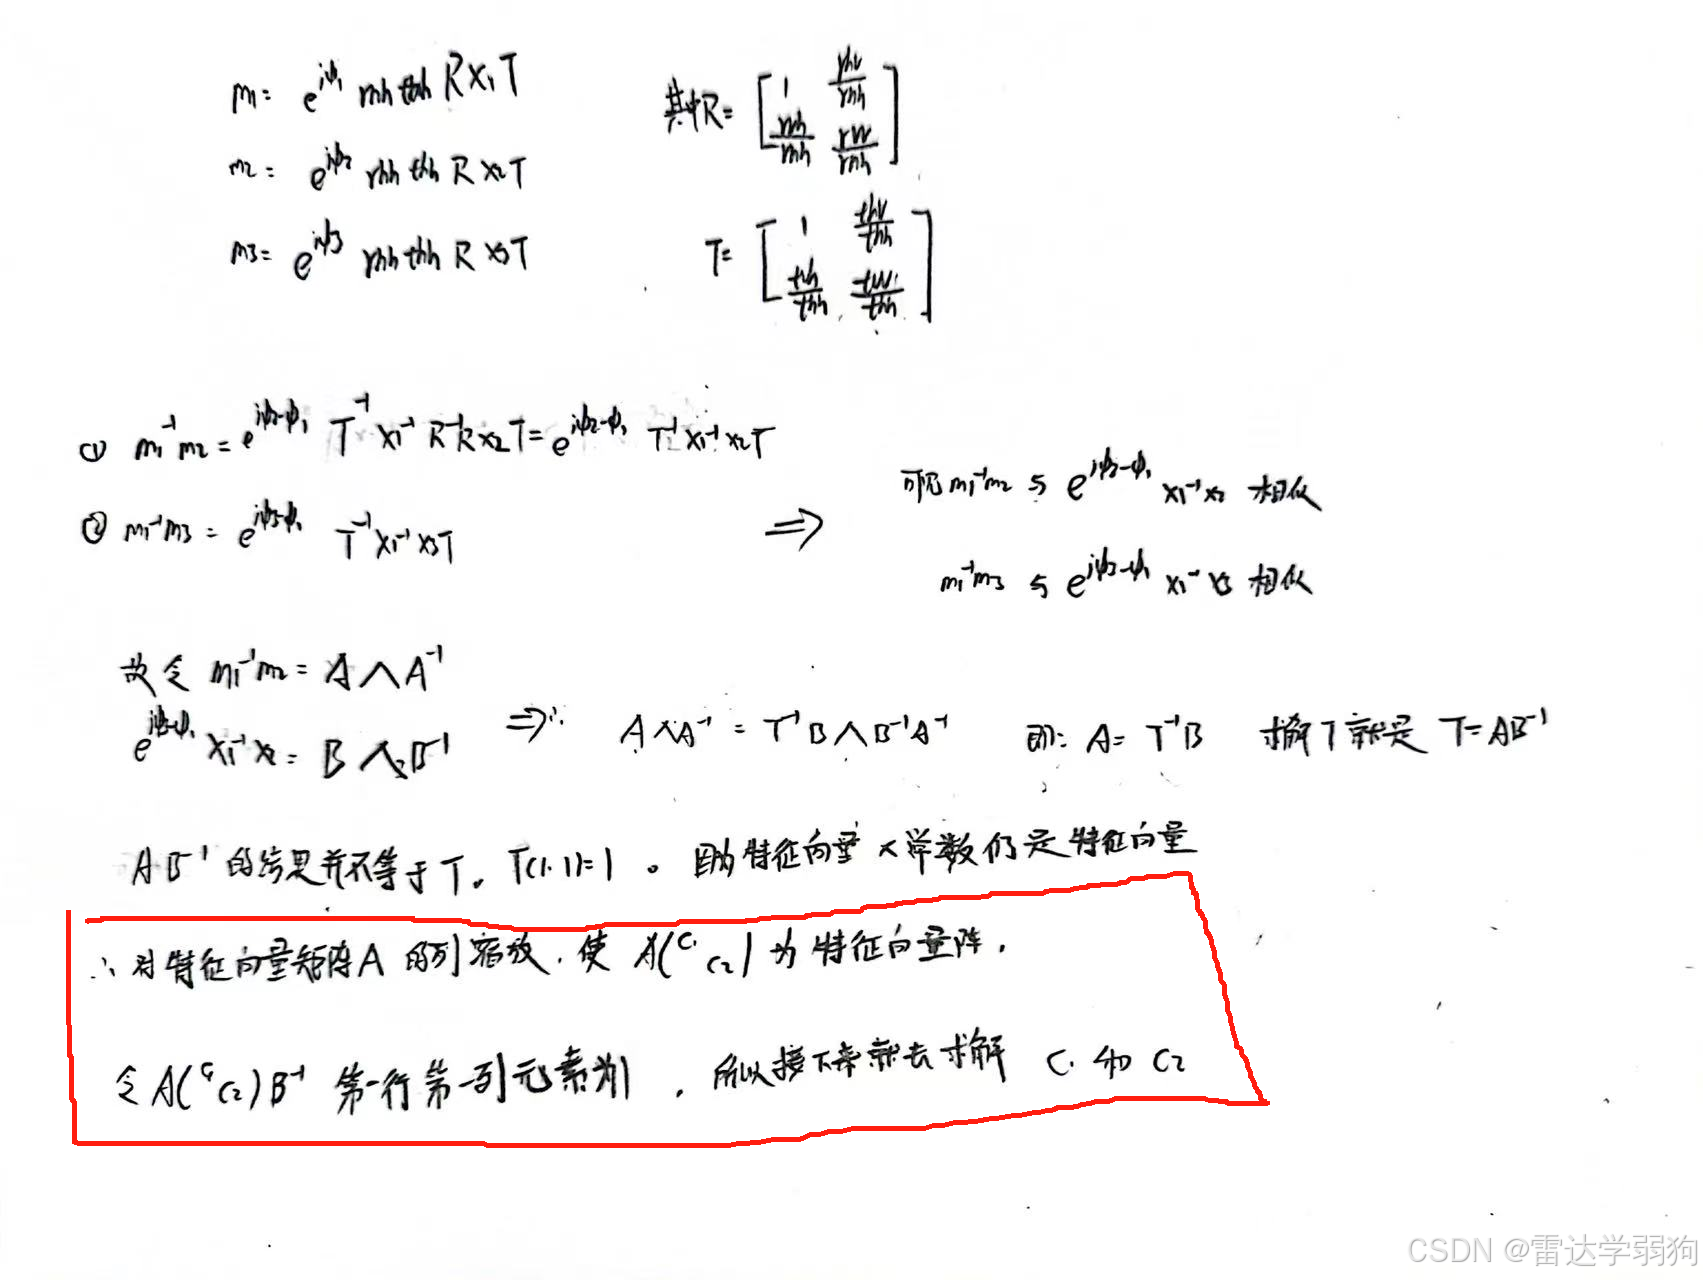 m1= e^{iφ1} rhh thh R X1 T
其中R= [ 1 rhv/rhh ; rvh/rhh rvv/rhh ]
m2= e^{iφ2} rhh thh R X2 T
m3= e^{iφ3} rhh thh R X3 T
T= [ 1 thv/thh ; tvh/thh tvv/thh ]
① m1^{-1} m2 = e^{iφ2-φ1} T^{-1} X1^{-1} R^{-1} R X2 T = e^{iφ2-φ1} T^{-1} X1^{-1} X2 T
② m1^{-1} m3 = e^{iφ3-φ1} T^{-1} X1^{-1} X3 T
⇒
可见 m1^{-1} m2 与 e^{iφ2-φ1} X1^{-1} X2 相似
m1^{-1} m3 与 e^{iφ3-φ1} X1^{-1} X3 相似
故令 m1^{-1} m2 = A Λ A^{-1}
e^{iφ2-φ1} X1^{-1} X2 = B Λ2 B^{-1}
⇒∴ A Λ A^{-1} = T^{-1} B Λ B^{-1} A^{-1} 即: A = T^{-1} B 求解T就是 T = A B^{-1}
A B^{-1} 的结果并不等于T。T(1,1)=1。因为特征向量×常数仍是特征向量
∴对特征向量矩阵A的列缩放,使 A(C1 C2) 为特征向量阵.
令 A(C1 C2)B^{-1} 第一行第一列元素为1,所以接下来就去求解 C1 和 C2
CSDN @雷达学弱狗